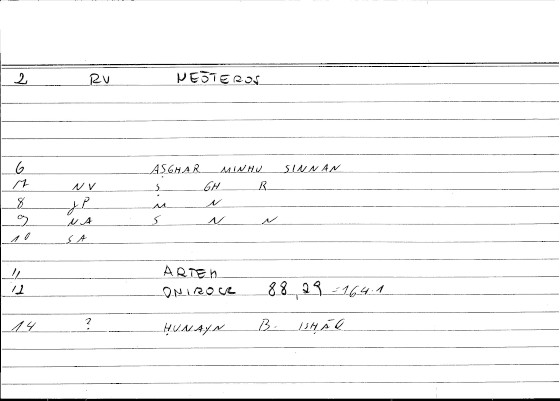 2 RV NEŠTEROS
6 AṢGHAR MINHU SINNAN
17 NV Ṣ GH R
8 JP M N
9 NA S N N
10 SA
11 ARTEM
12 ONIROCR 88,29 =164.1
14 ? ḤUNAYN B. ISḤĀQ